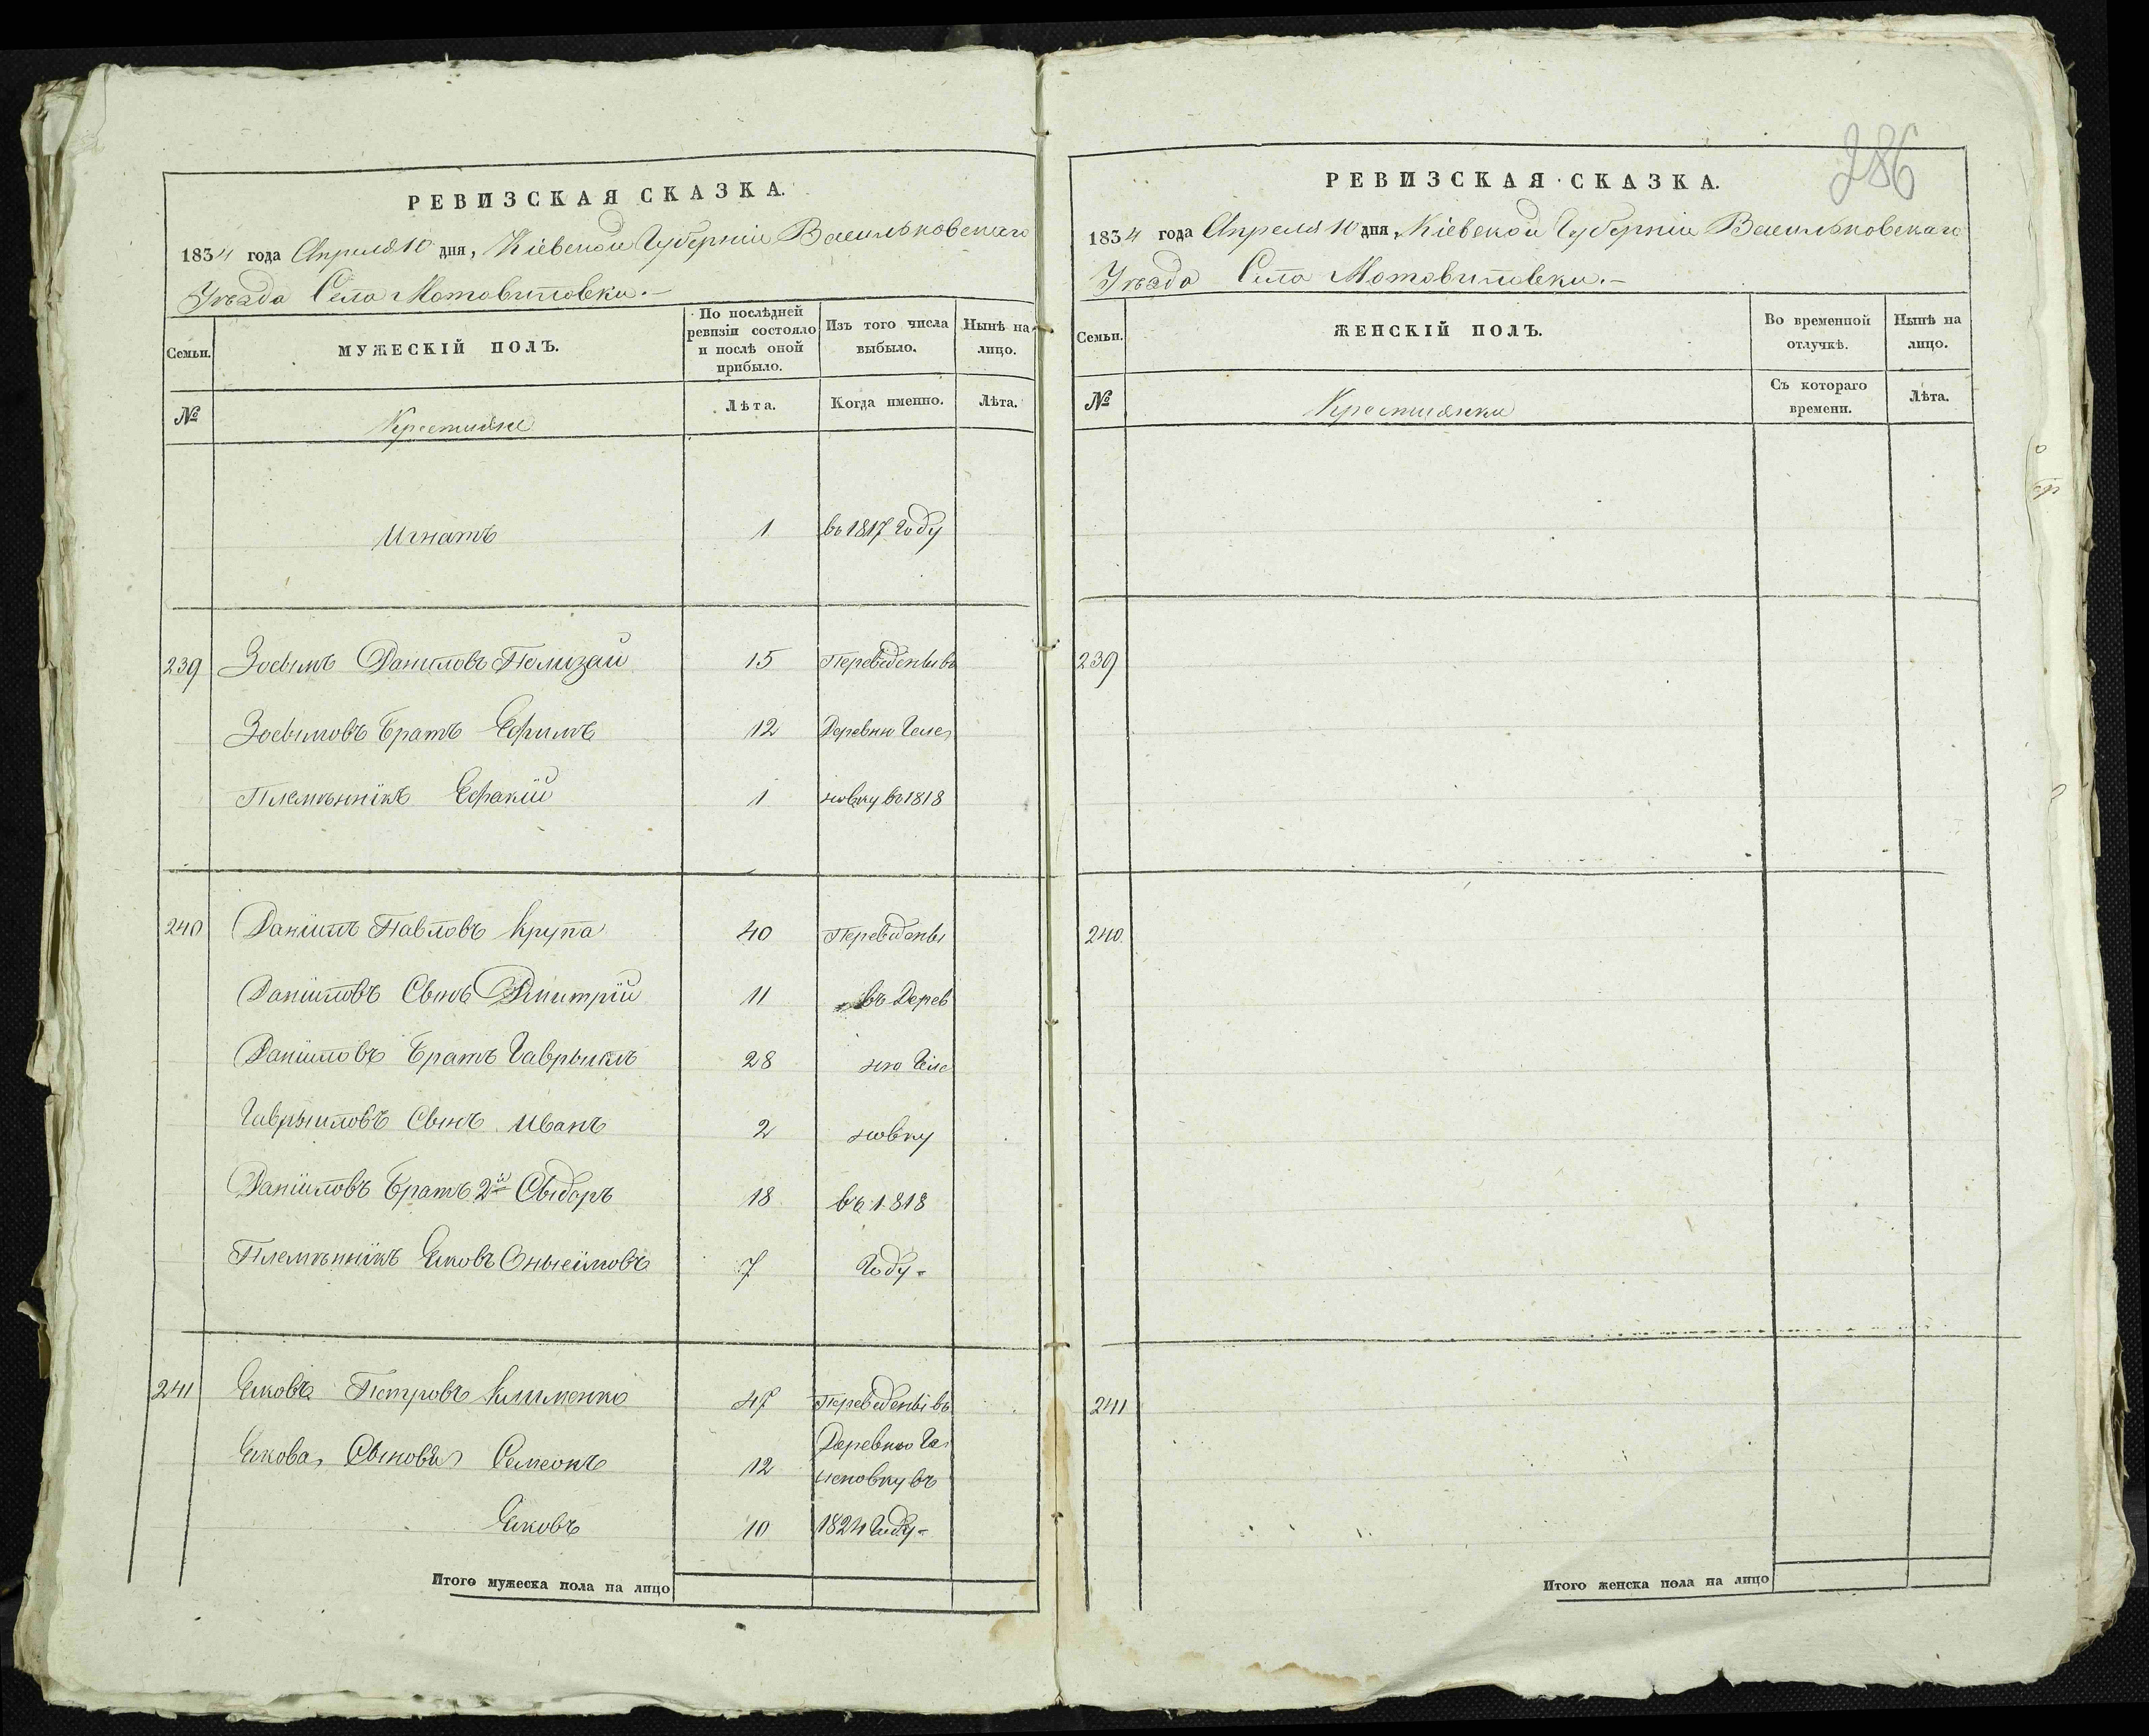 РЕВИЗСКАЯ СКАЗКА.
1834 года Апреля 10 дня, Кіевской Губерніи Васильковскаго
Уѣзда Села Мотовиловки.-
Семьи.
МУЖЕСКІЙ ПОЛЪ.
По послѣдней ревизіи состояло и послѣ оной прибыло.
Изъ того числа выбыло.
Нынѣ на лицо.
№
Крестьяне
Лѣта.
Когда именно.
Лѣта.
Игнатъ 1 во 1817 Году
239 Зосымъ Даниловъ 15 Переведены въ
Зосымовъ Братъ Ефимъ 12 Деревню
Племѣнникъ 1 новку во 1818
240 Даніилъ Павловъ Крупа 40 Переведены
Даніиловъ Сынъ Дмитрій 11 въ Дерев
Даніиловъ Братъ Гаврыилъ 28 ню
Гаврыиловъ Сынъ Иванъ 2 новку
Даніиловъ Братъ 2й Сыдоръ 18 въ 1818
Племѣнникъ Яковъ 7 Году-
241 Яковъ Петровъ Клименко 47 Переведены въ
Деревню
Якова, Сыновья Семеонъ 12
Яковъ 10 1824 Году-
Итого мужеска пола на лицо
286
РЕВИЗСКАЯ СКАЗКА.
1834 года Апреля 10 дня, Кіевской Губерніи Васильковскаго
Уѣзда Села Мотовиловки.-
Семьи.
ЖЕНСКІЙ ПОЛЪ.
Во временной отлучкѣ.
Нынѣ на лицо.
№
Крестьянки
Съ котораго времени.
Лѣта.
239
240
241
Итого женска пола на лицо